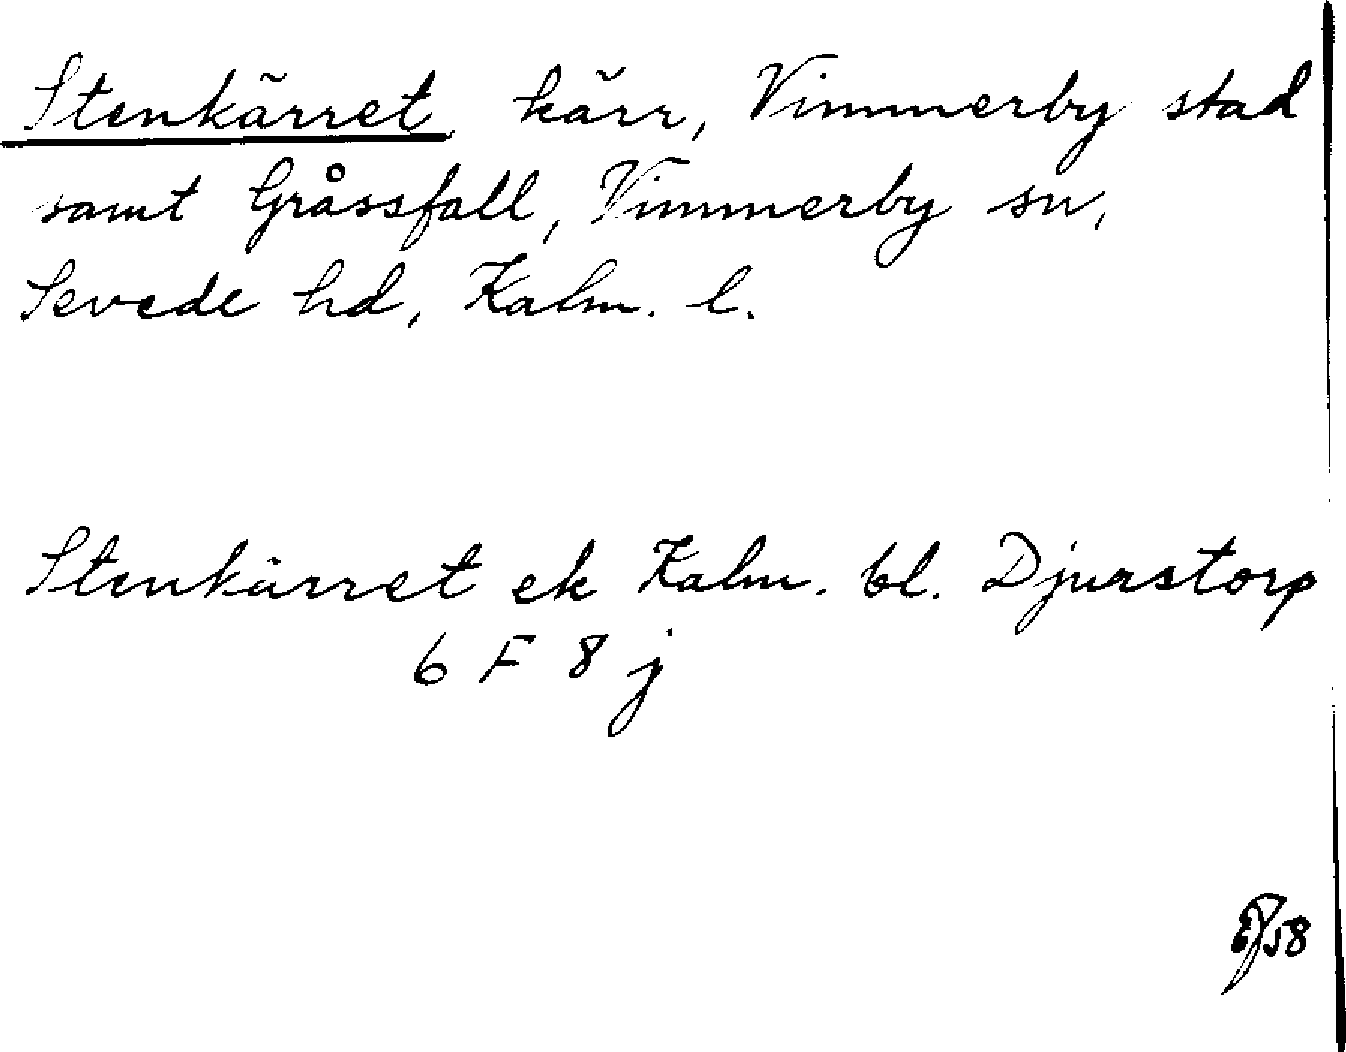 Stenkärret, kärr, Vimmerby stad
samt Gråssfall, Vimmerby sn,
Sevede hd, Kalm. l.
Stenkärret ek Kalm. bl. Djurstorp
6 F 8 j
58